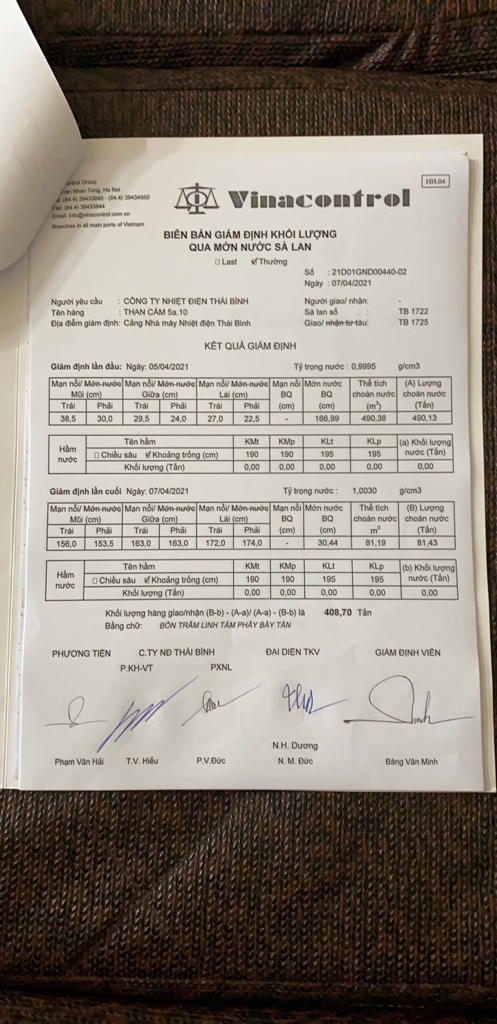 ntrol Group
an Nhan Tong, Ha Noi
(84.4) 39433840 - (84.4) 39434950
Fax: (84.4) 39433844
Email: info@vinacontrol.com.vn
Branches in all main ports of Vietnam
Vinacontrol
HH.04
BIÊN BẢN GIÁM ĐỊNH KHỐI LƯỢNG
QUA MỚN NƯỚC SÀ LAN
☐ Last ☑ Thường
Số : 21D01GND00440-02
Ngày : 07/04/2021
Người yêu cầu : CÔNG TY NHIỆT ĐIỆN THÁI BÌNH Người giao/ nhận: -
Tên hàng : THAN CÁM 5a.10 Sà lan số : TB 1722
Địa điểm giám định: Cảng Nhà máy Nhiệt điện Thái Bình Giao/ nhận từ tàu: TB 1725
KẾT QUẢ GIÁM ĐỊNH
Giám định lần đầu: Ngày: 05/04/2021 Tỷ trọng nước : 0,9995 g/cm3
Mạn nổi/ Mớn nước Mạn nổi/ Mớn nước Mạn nổi/ Mớn nước Mạn nổi Mớn nước Thể tích (A) Lượng
Mũi (cm) Giữa (cm) Lái (cm) BQ BQ choán nước choán nước
Trái Phải Trái Phải Trái Phải (cm) (cm) (m³) (Tấn)
38,5 30,0 29,5 24,0 27,0 22,5 - 166,99 490,38 490,13
Hầm nước Tên hầm KMt KMp KLt KLp (a) Khối lượng nước (Tấn)
☐ Chiều sâu ☑ Khoảng trống (cm) 190 190 195 195
Khối lượng (Tấn) 0,00 0,00 0,00 0,00 0,00
Giám định lần cuối: Ngày: 07/04/2021 Tỷ trọng nước : 1,0030 g/cm3
Mạn nổi/ Mớn nước Mạn nổi/ Mớn nước Mạn nổi/ Mớn nước Mạn nổi Mớn nước Thể tích (B) Lượng
Mũi (cm) Giữa (cm) Lái (cm) BQ BQ choán nước choán nước
Trái Phải Trái Phải Trái Phải (cm) (cm) m³ (Tấn)
156,0 153,5 163,0 163,0 172,0 174,0 - 30,44 81,19 81,43
Hầm nước Tên hầm KMt KMp KLt KLp (b) Khối lượng nước (Tấn)
☐ Chiều sâu ☑ Khoảng trống (cm) 190 190 195 195
Khối lượng (Tấn) 0,00 0,00 0,00 0,00 0,00
Khối lượng hàng giao/nhận (B-b) - (A-a)/ (A-a) - (B-b) là 408,70 Tấn
Bằng chữ: BỐN TRĂM LINH TÁM PHẨY BẨY TẤN
PHƯƠNG TIỆN C.TY NĐ THÁI BÌNH ĐẠI DIỆN TKV GIÁM ĐỊNH VIÊN
P.KH-VT PXNL
N.H. Dương
Phạm Văn Hải T.V. Hiếu P.V.Đức N. M. Đức Bàng Văn Minh